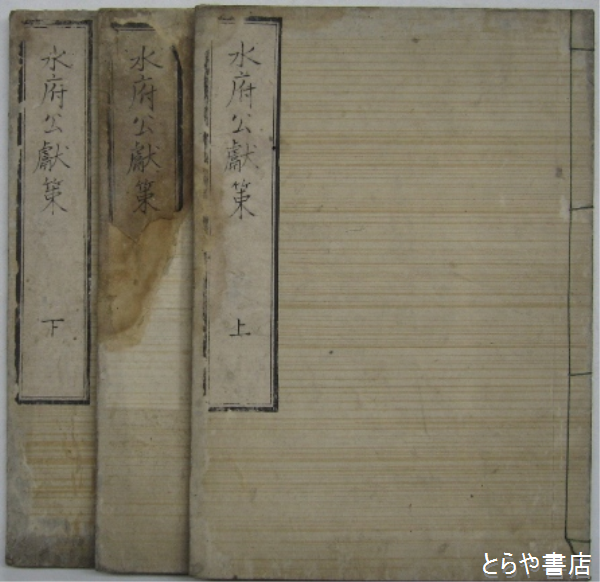 水府公獻策 上
水府公獻策
水府公獻策 下
とらや書店